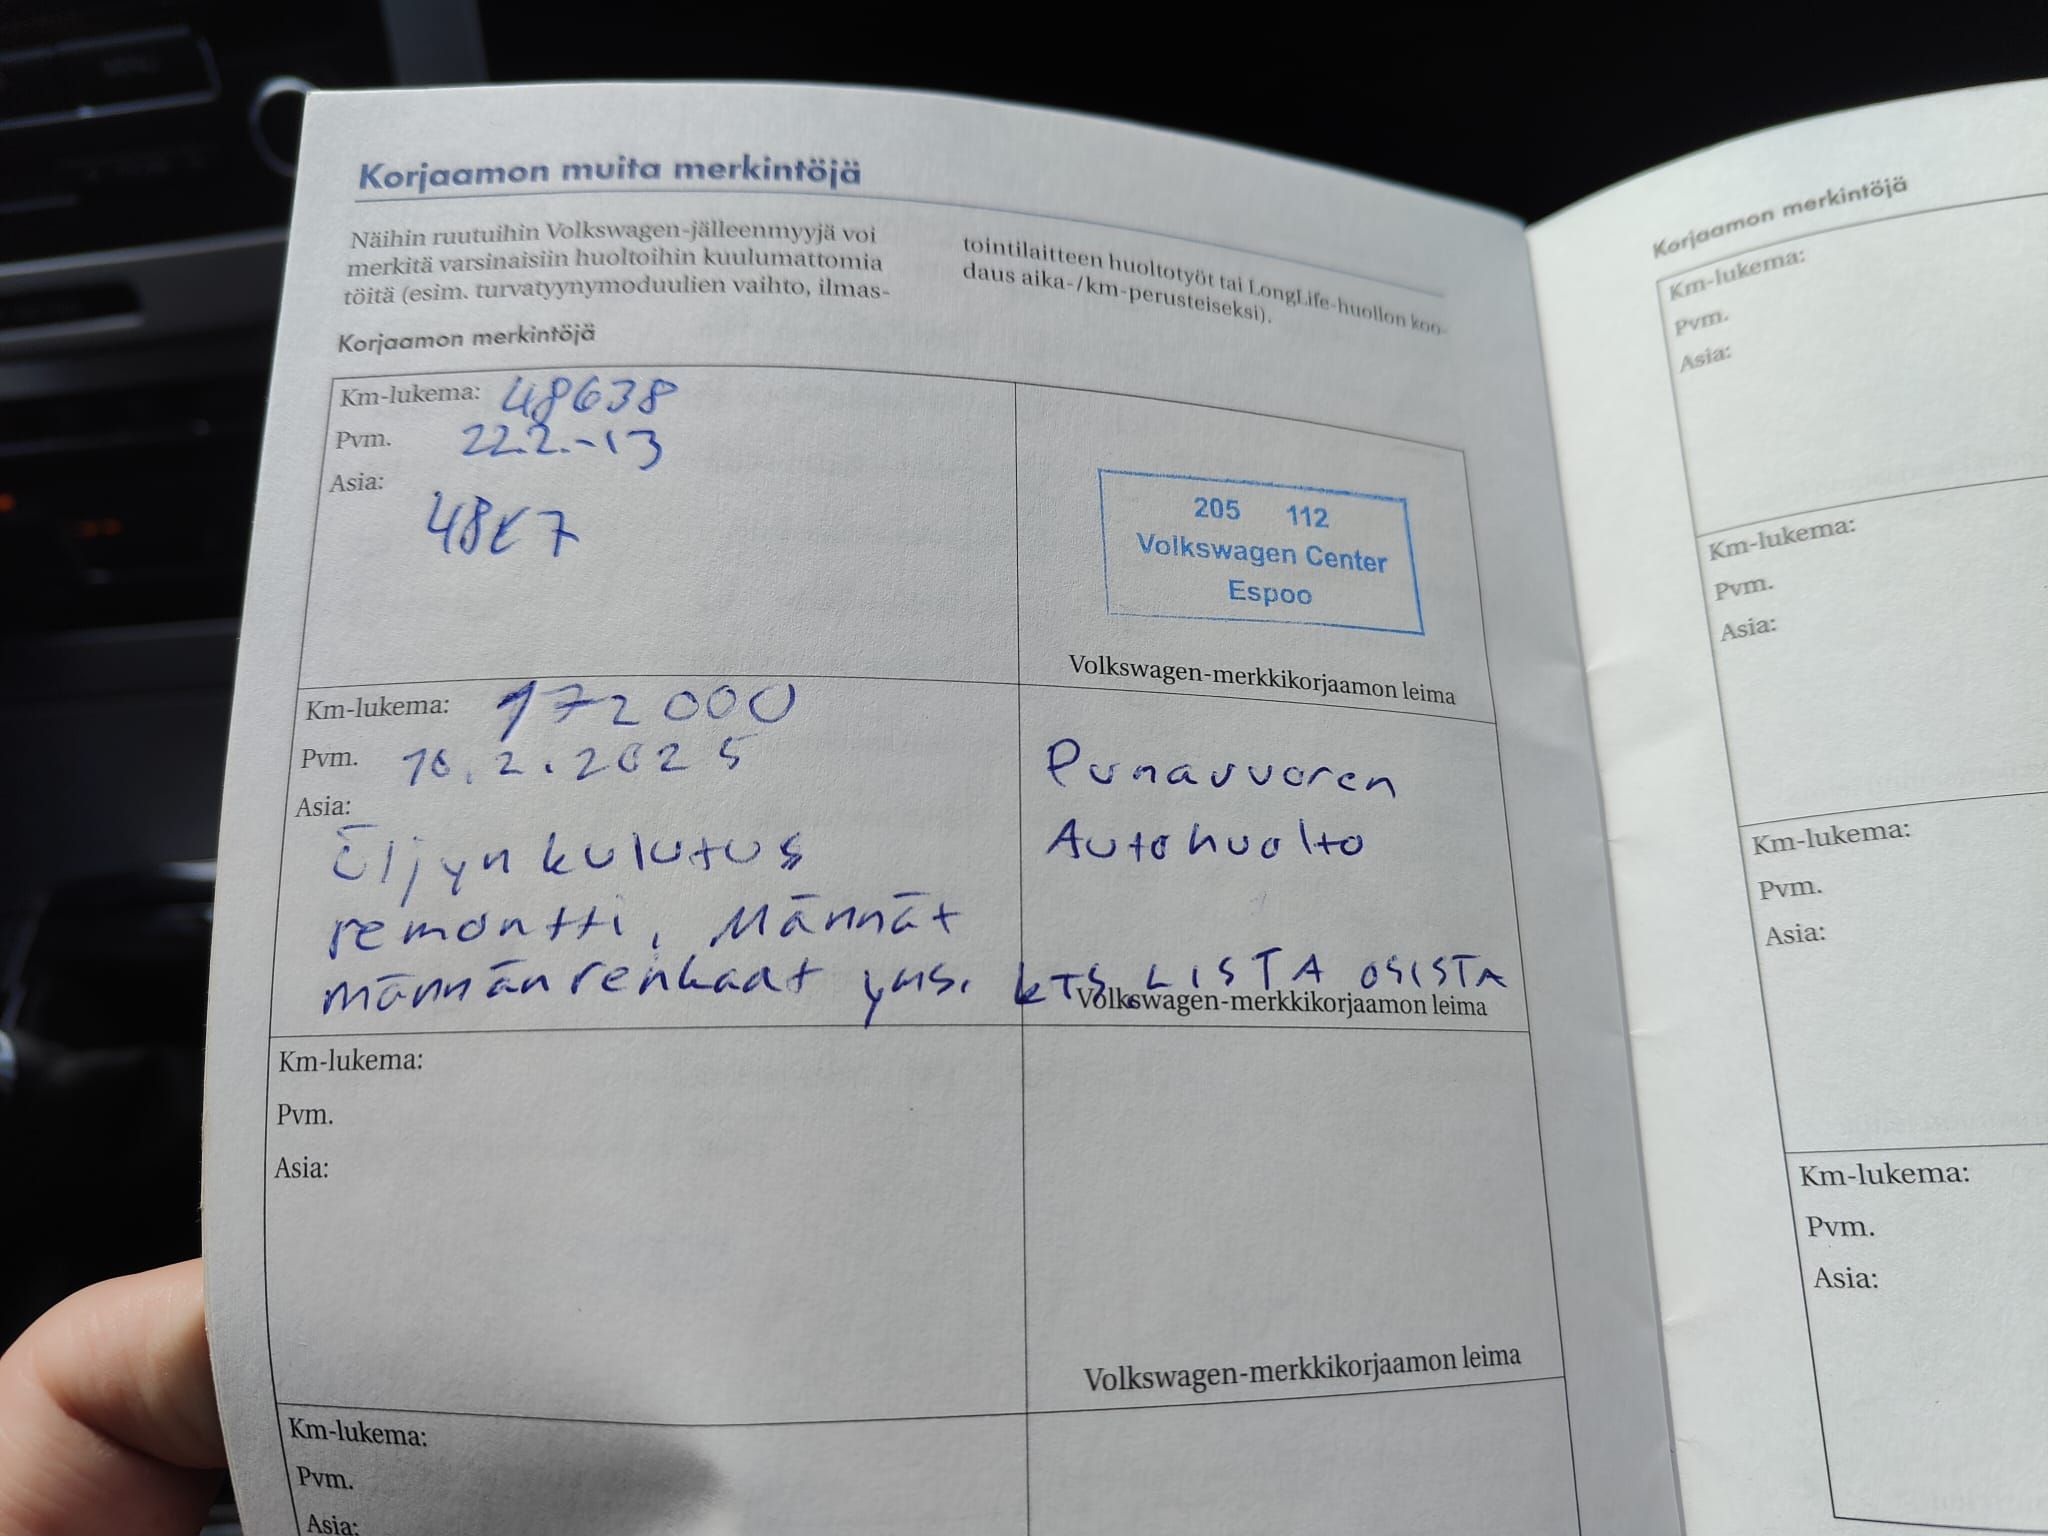 Korjaamon muita merkintöjä
Näihin ruutuihin Volkswagen-jälleenmyyjä voi
merkitä varsinaisiin huoltoihin kuulumattomia
töitä (esim. turvatyynymoduulien vaihto, ilmas-
tointilaitteen huoltotyöt tai LongLife-huollon koo-
daus aika-/km-perusteiseksi).
Korjaamon merkintöjä
Km-lukema: 48638
Pvm. 22.2.-13
Asia:
48E7
205 112
Volkswagen Center
Espoo
Volkswagen-merkkikorjaamon leima
Km-lukema: 172000
Pvm. 10.2.2025
Asia:
Öljyn kulutus
remontti, Männät
männänrenkaat yms. kts. LISTA OSISTA
Punavuoren
Autohuolto
Volkswagen-merkkikorjaamon leima
Km-lukema:
Pvm.
Asia:
Volkswagen-merkkikorjaamon leima
Km-lukema:
Pvm.
Asia:
Korjaamon merkintöjä
Km-lukema:
Pvm.
Asia:
Km-lukema:
Pvm.
Asia:
Km-lukema:
Pvm.
Asia:
Km-lukema:
Pvm.
Asia: